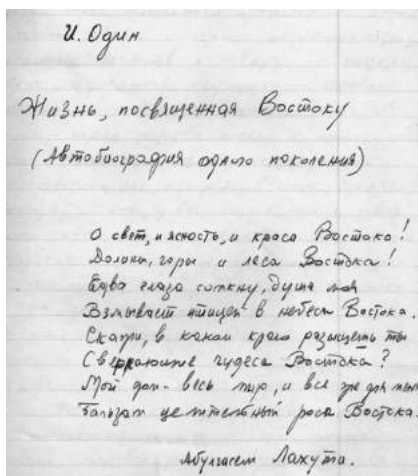 И. Один
Жизнь, посвященная Востоку
(Автобиография одного поколения)
О свет, и ясность, и краса Востока!
Долины, горы и леса Востока!
Едва глаза сомкну, душа моя
Взмывает птицей в небеса Востока.
Скажи, в каком краю разыщешь ты
Сверкающие чудеса Востока?
Мой дом - весь мир, и все же для меня
Бальзам целительный роса Востока.
Абулгасем Лахути.